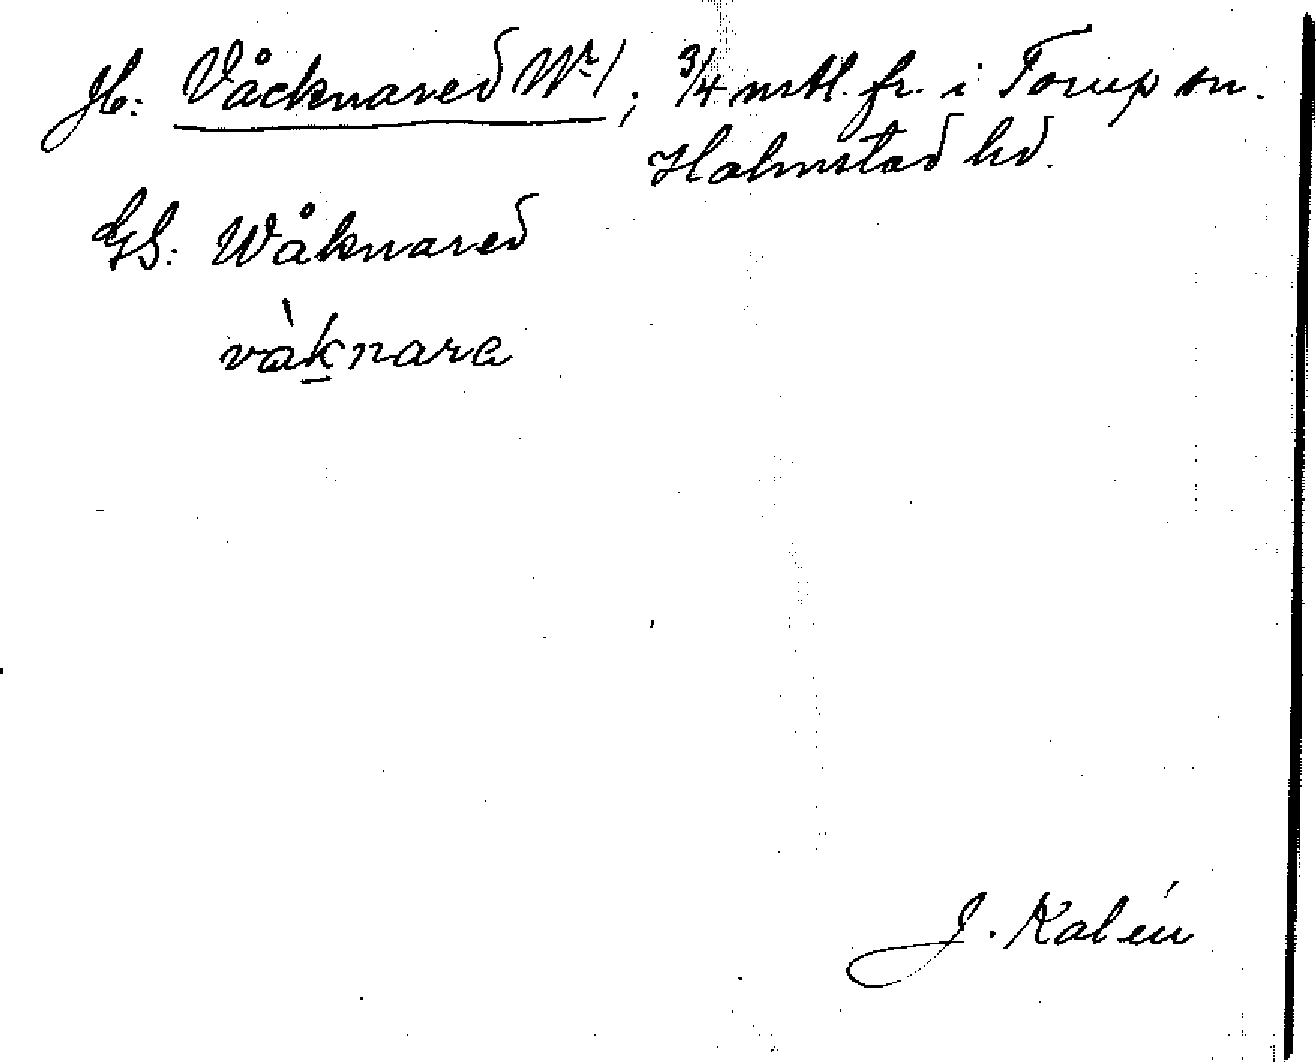 Jb: Våcknared Nr 1; 3/4 mtl. fr. i Torup sn.
Halmstad hd.
GS: Wåknared
våknara
J. Kalén